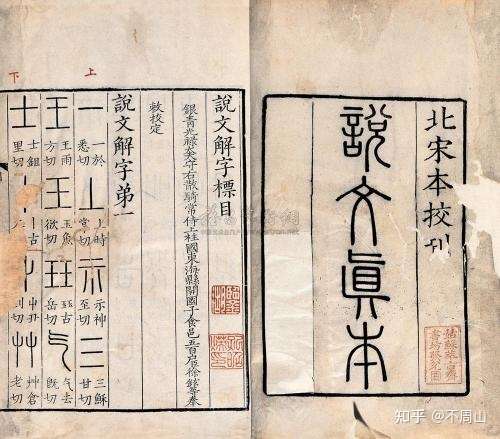 北宋本挍刊
說文眞本
說文解字標目
銀青光祿大夫守右散騎常侍上柱國東海縣開國子食邑五百戶臣徐鉉等奉
敕校定
說文解字弟一
上
一 一於悉切 丄 上時掌切 示 示神至切 三 三穌甘切
王 王雨方切 玉 玉魚欲切 玨 玨古岳切 气 气去旣切
下
士 士鉏里切 丨 丨古 切 屮 屮丑列切 艸 艸倉老切
知乎 @不周山